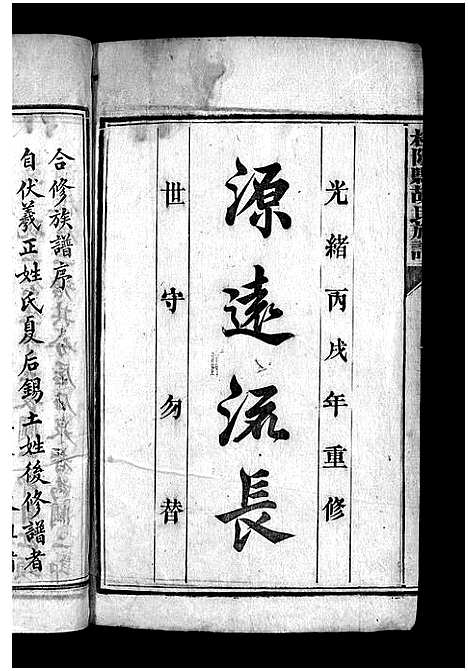 光緒丙戌年重修
源遠流長
世守勿替
合修族譜序
自伏羲正姓氏夏后錫土姓後修譜者